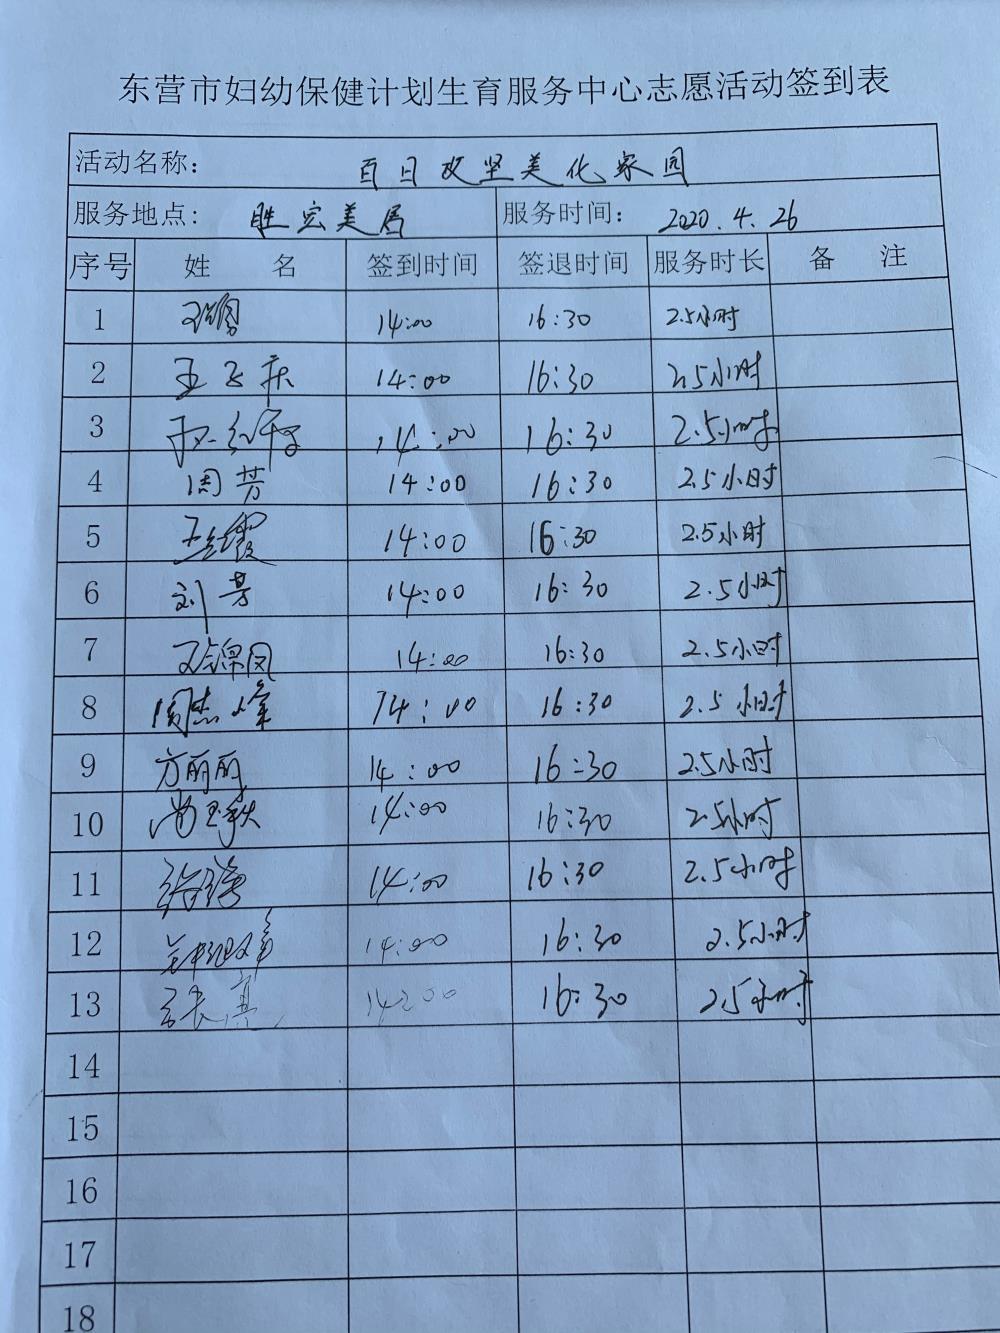 东营市妇幼保健计划生育服务中心志愿活动签到表
活动名称： 百日攻坚美化家园
服务地点： 胜宏美居 服务时间： 2020.4.26
序号 姓 名 签到时间 签退时间 服务时长 备 注
1 14:00 16:30 2.5小时
2 王飞庆 14:00 16:30 2.5小时
3 14:00 16:30 2.5小时
4 周芳 14:00 16:30 2.5小时
5 14:00 16:30 2.5小时
6 刘芳 14:00 16:30 2.5小时
7 14:00 16:30 2.5小时
8 周杰峰 14:00 16:30 2.5小时
9 方丽丽 14:00 16:30 2.5小时
10 14:00 16:30 2.5小时
11 14:00 16:30 2.5小时
12 14:00 16:30 2.5小时
13 14:00 16:30 2.5小时
14
15
16
17
18